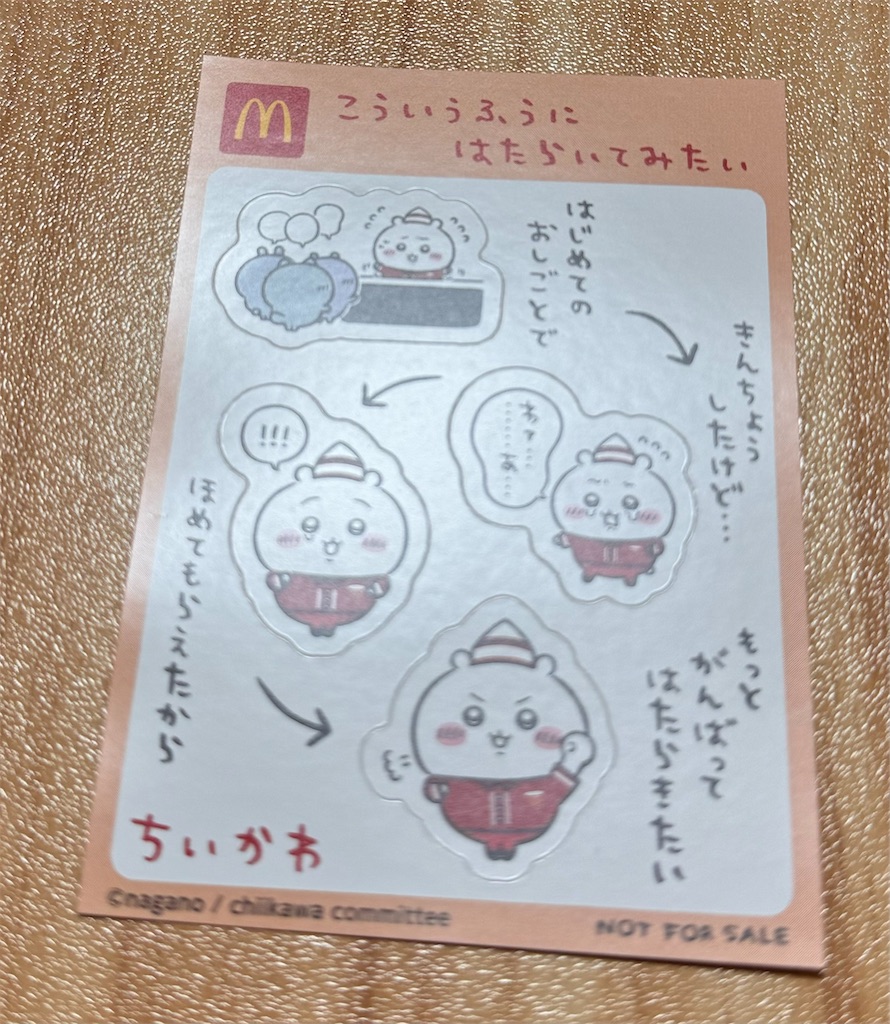 こういうふうに
はたらいてみたい
はじめての
おしごとで
きんちょう
したけど…
わァ……
……ぁ
!!!
ほめてもらえたから
もっと
がんばって
はたらきたい
ちいかわ
©nagano / chiikawa committee
NOT FOR SALE